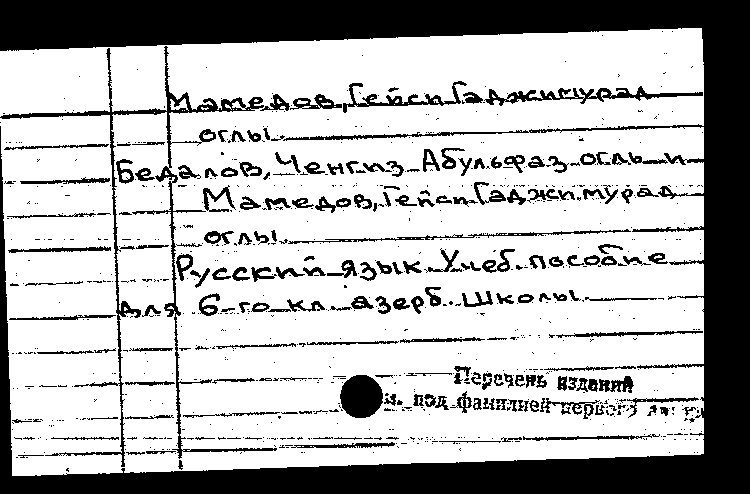 Мамедов, Гейси Гаджимурад
оглы.
Бедалов, Ченгиз Абульфаз оглы и
Мамедов, Гейси Гаджимурад
оглы.
Русский язык. Учеб. пособие
для 6-го кл. азерб. школы.
Перечень изданий
под фамилией первого